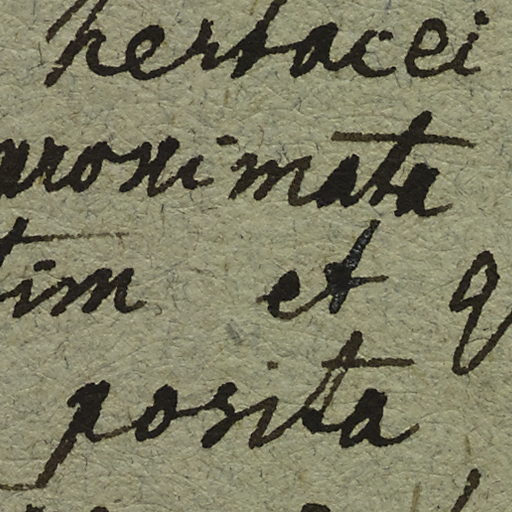 herbacei
aproximata
tim et q
posita